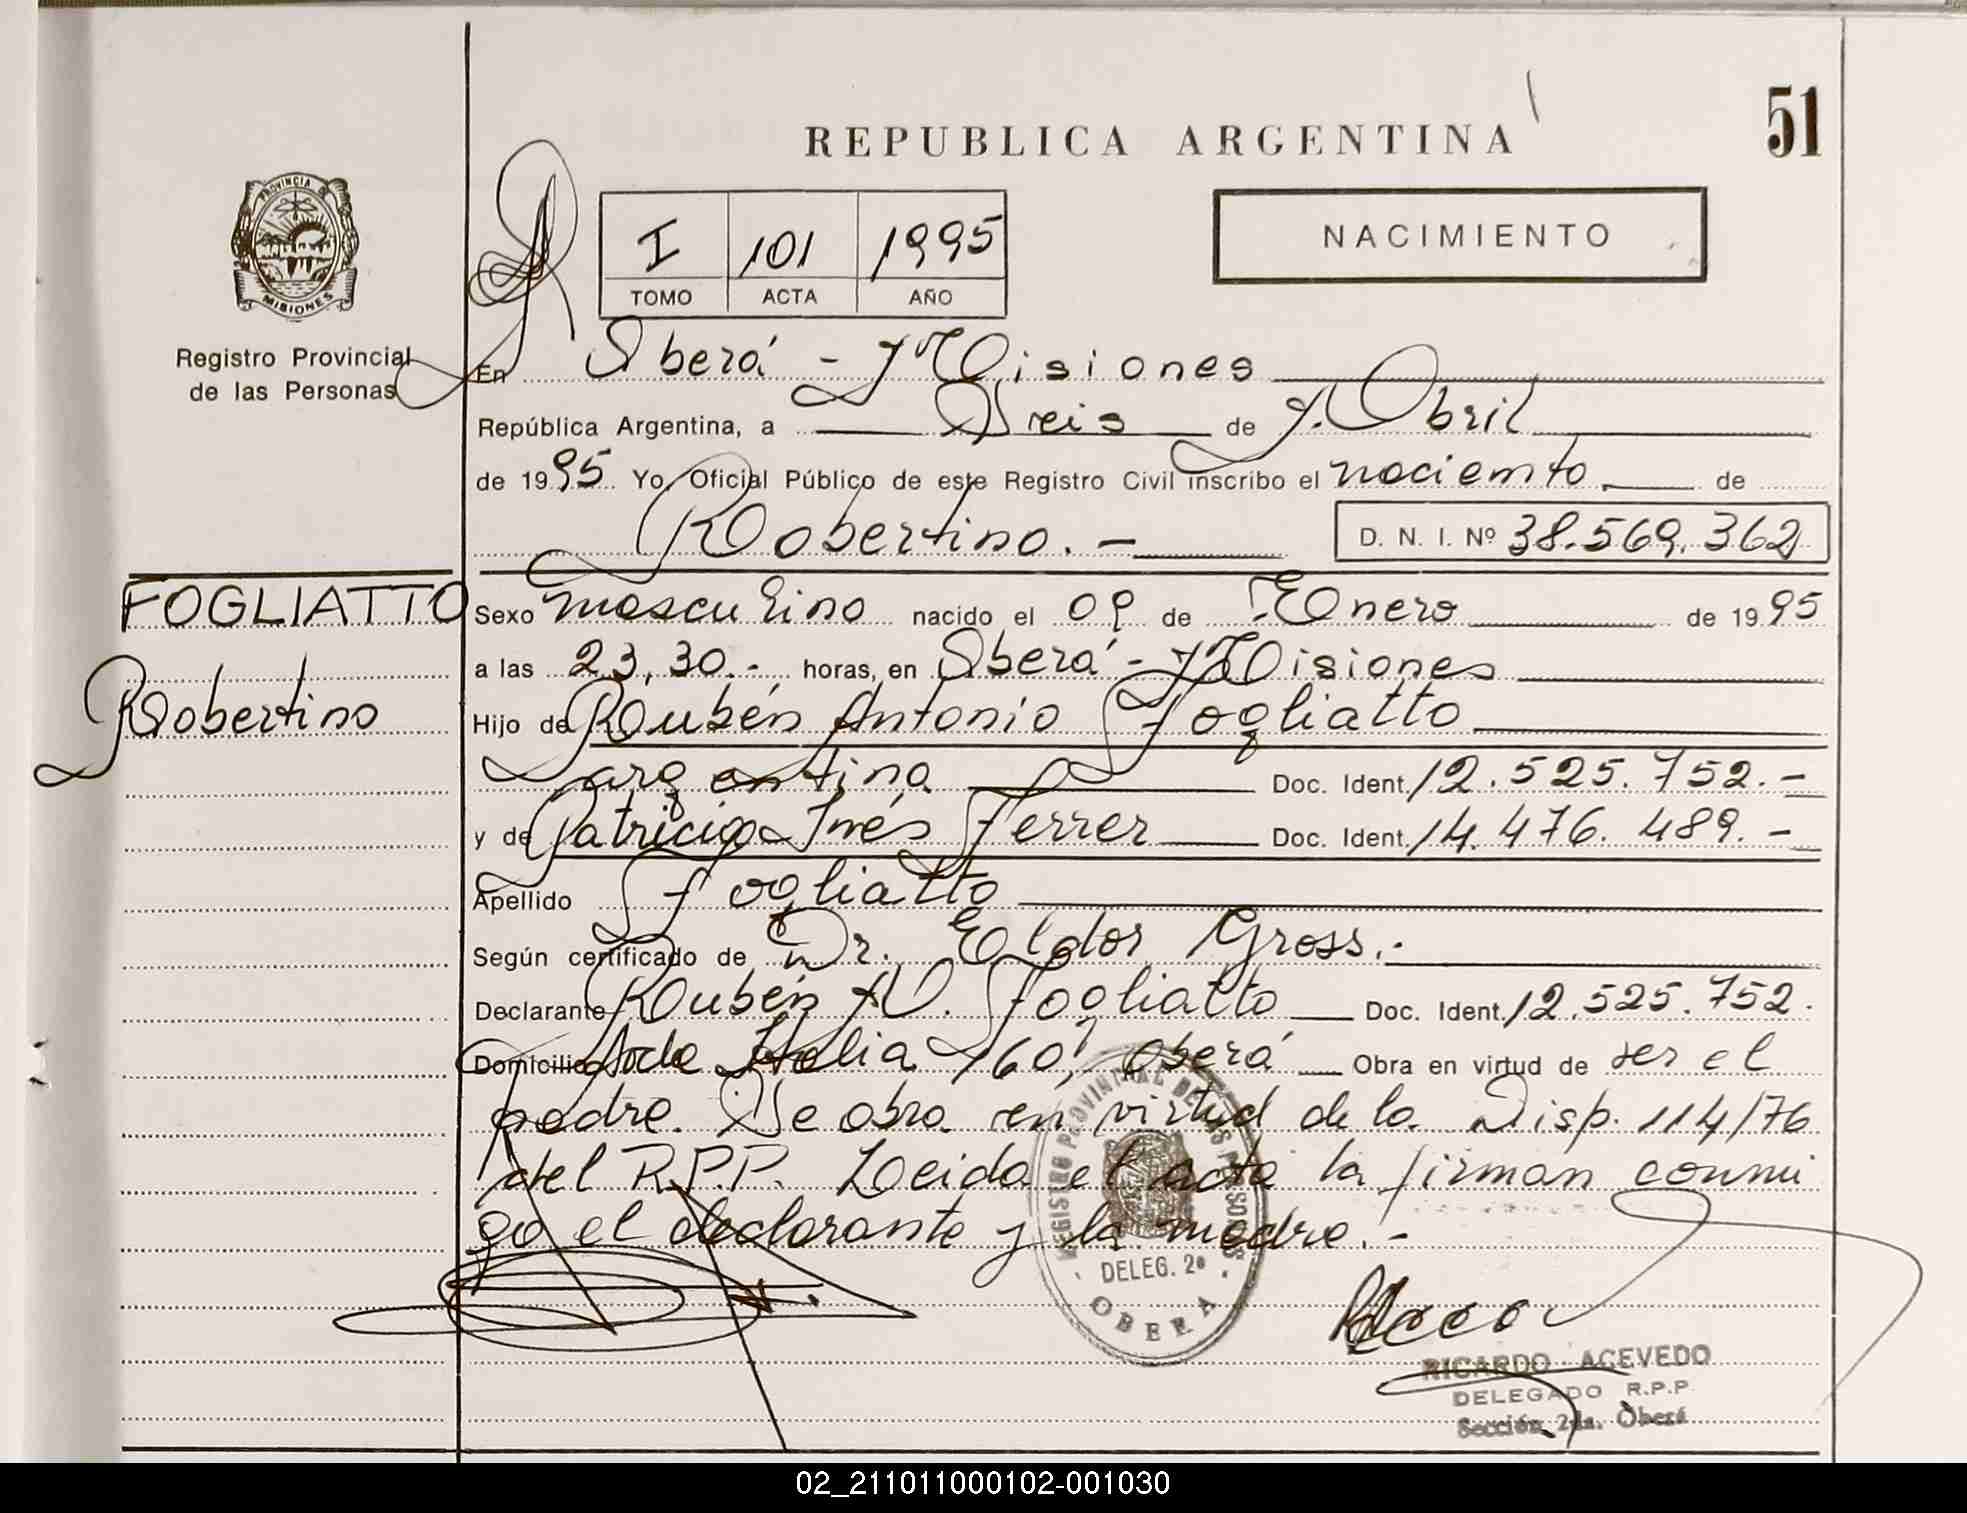 51
REPUBLICA ARGENTINA
PROVINCIA DE
MISIONES
Registro Provincial
de las Personas
I 101 1995
TOMO ACTA AÑO
NACIMIENTO
En Oberá - Misiones
República Argentina, a Seis de Abril
de 1995 Yo, Oficial Público de este Registro Civil inscribo el naciemto de
Robertino. - D. N. I. Nº 38.569.362
FOGLIATTO
Robertino
Sexo masculino nacido el 09 de Enero de 1995
a las 23,30.- horas, en Oberá - Misiones
Hijo de Rubén Antonio Fogliatto
argentino Doc. Ident. 12.525.752.-
y de Patricia Inés Ferrer Doc. Ident. 14.476.489.-
Apellido Fogliatto
Según certificado de Dr. Eldor Gross.-
Declarante Rubén A. Fogliatto Doc. Ident. 12.525.752.
Domicilio Avda Italia 160, Oberá Obra en virtud de ser el
padre. Se obra en virtud de la Disp. 114/76
del R.P.P. Leida el acta la firman conmi
go el declarante y la madre.-
REGISTRO PROVINCIAL DE LAS PERSONAS
DELEG. 2º
OBERA
RICARDO ACEVEDO
DELEGADO R.P.P.
Sección 2da. Oberá
02_211011000102-001030